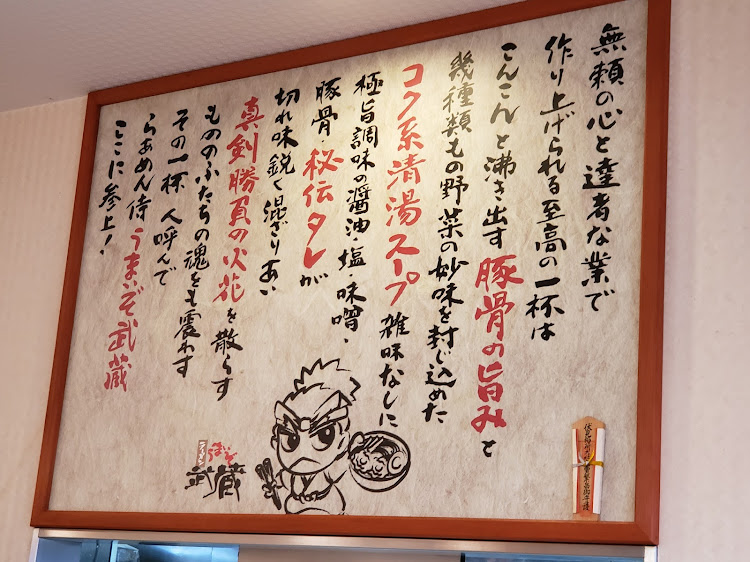 無頼の心と達者な業で
作り上げられる至高の一杯は
こんこんと沸き出す豚骨の旨みと
幾種類もの野菜の妙味を封じ込めた
コク系清湯スープ雑味なしに
極旨調味の醤油・塩・味噌・
豚骨・秘伝タレが
切れ味鋭く混ざりあい
真剣勝負の火花を散らす
もののふたちの魂をも震わす
その一杯 人呼んで
らぁめん侍うまいぞ武蔵
ここに参上!
ラーメン
うまいぞ
武蔵